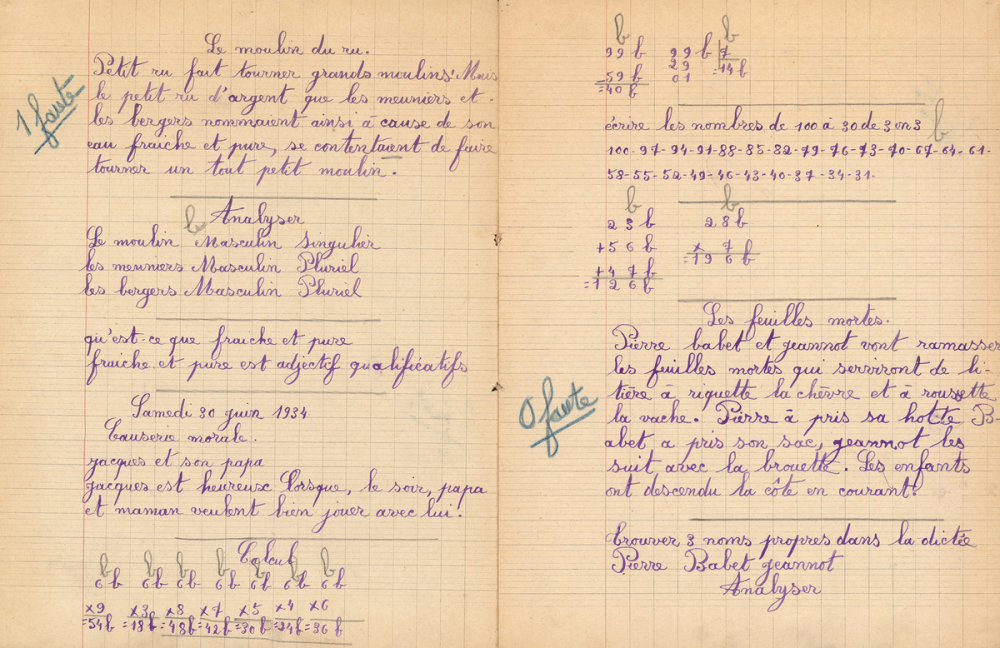 Le moulin du ru.
Petit ru fait tourner grands moulins. Mais
le petit ru d'argent que les meuniers et
les bergers nommaient ainsi à cause de son
eau fraiche et pure, se contentaient de faire
tourner un tout petit moulin.
1 faute
b
Analyser
Le moulin Masculin Singulier
les meuniers Masculin Pluriel
les bergers Masculin Pluriel
qu'est-ce que fraiche et pure
fraiche et pure est adjectif qualificatifs
Samedi 30 juin 1934
Causerie morale.
jacques et son papa
jacques est heureux lorsque, le soir, papa
et maman veulent bien jouer avec lui.
Calcul
b b b b b b b
6b 6b 6b 6b 6b 6b 6b
x9 x3 x8 x7 x5 x4 x6
=54b =18b =48b =42b =30b =24b =36b
b b
99 b 99 b 7
29 =14b
-59 b 01
=40b
écrire les nombres de 100 à 30 de 3 en 3
b
100-97-94-91-88-85-82-79-76-73-70-67-64-61-
58-55-52-49-46-43-40-37-34-31-
b b
23 b 28 b
+56 b x 7 b
+47 b =196 b
=126 b
Les feuilles mortes.
Pierre babet et jeannot vont ramasser
les feuilles mortes qui serviront de li-
tière à riquette la chèvre et à roussette
la vache. Pierre à pris sa hotte B-
abet a pris son sac, jeannot les
suit avec la brouette. Les enfants
ont descendu la côte en courant.
0 faute
trouver 3 noms propres dans la dictée
Pierre Babet jeannot
Analyser